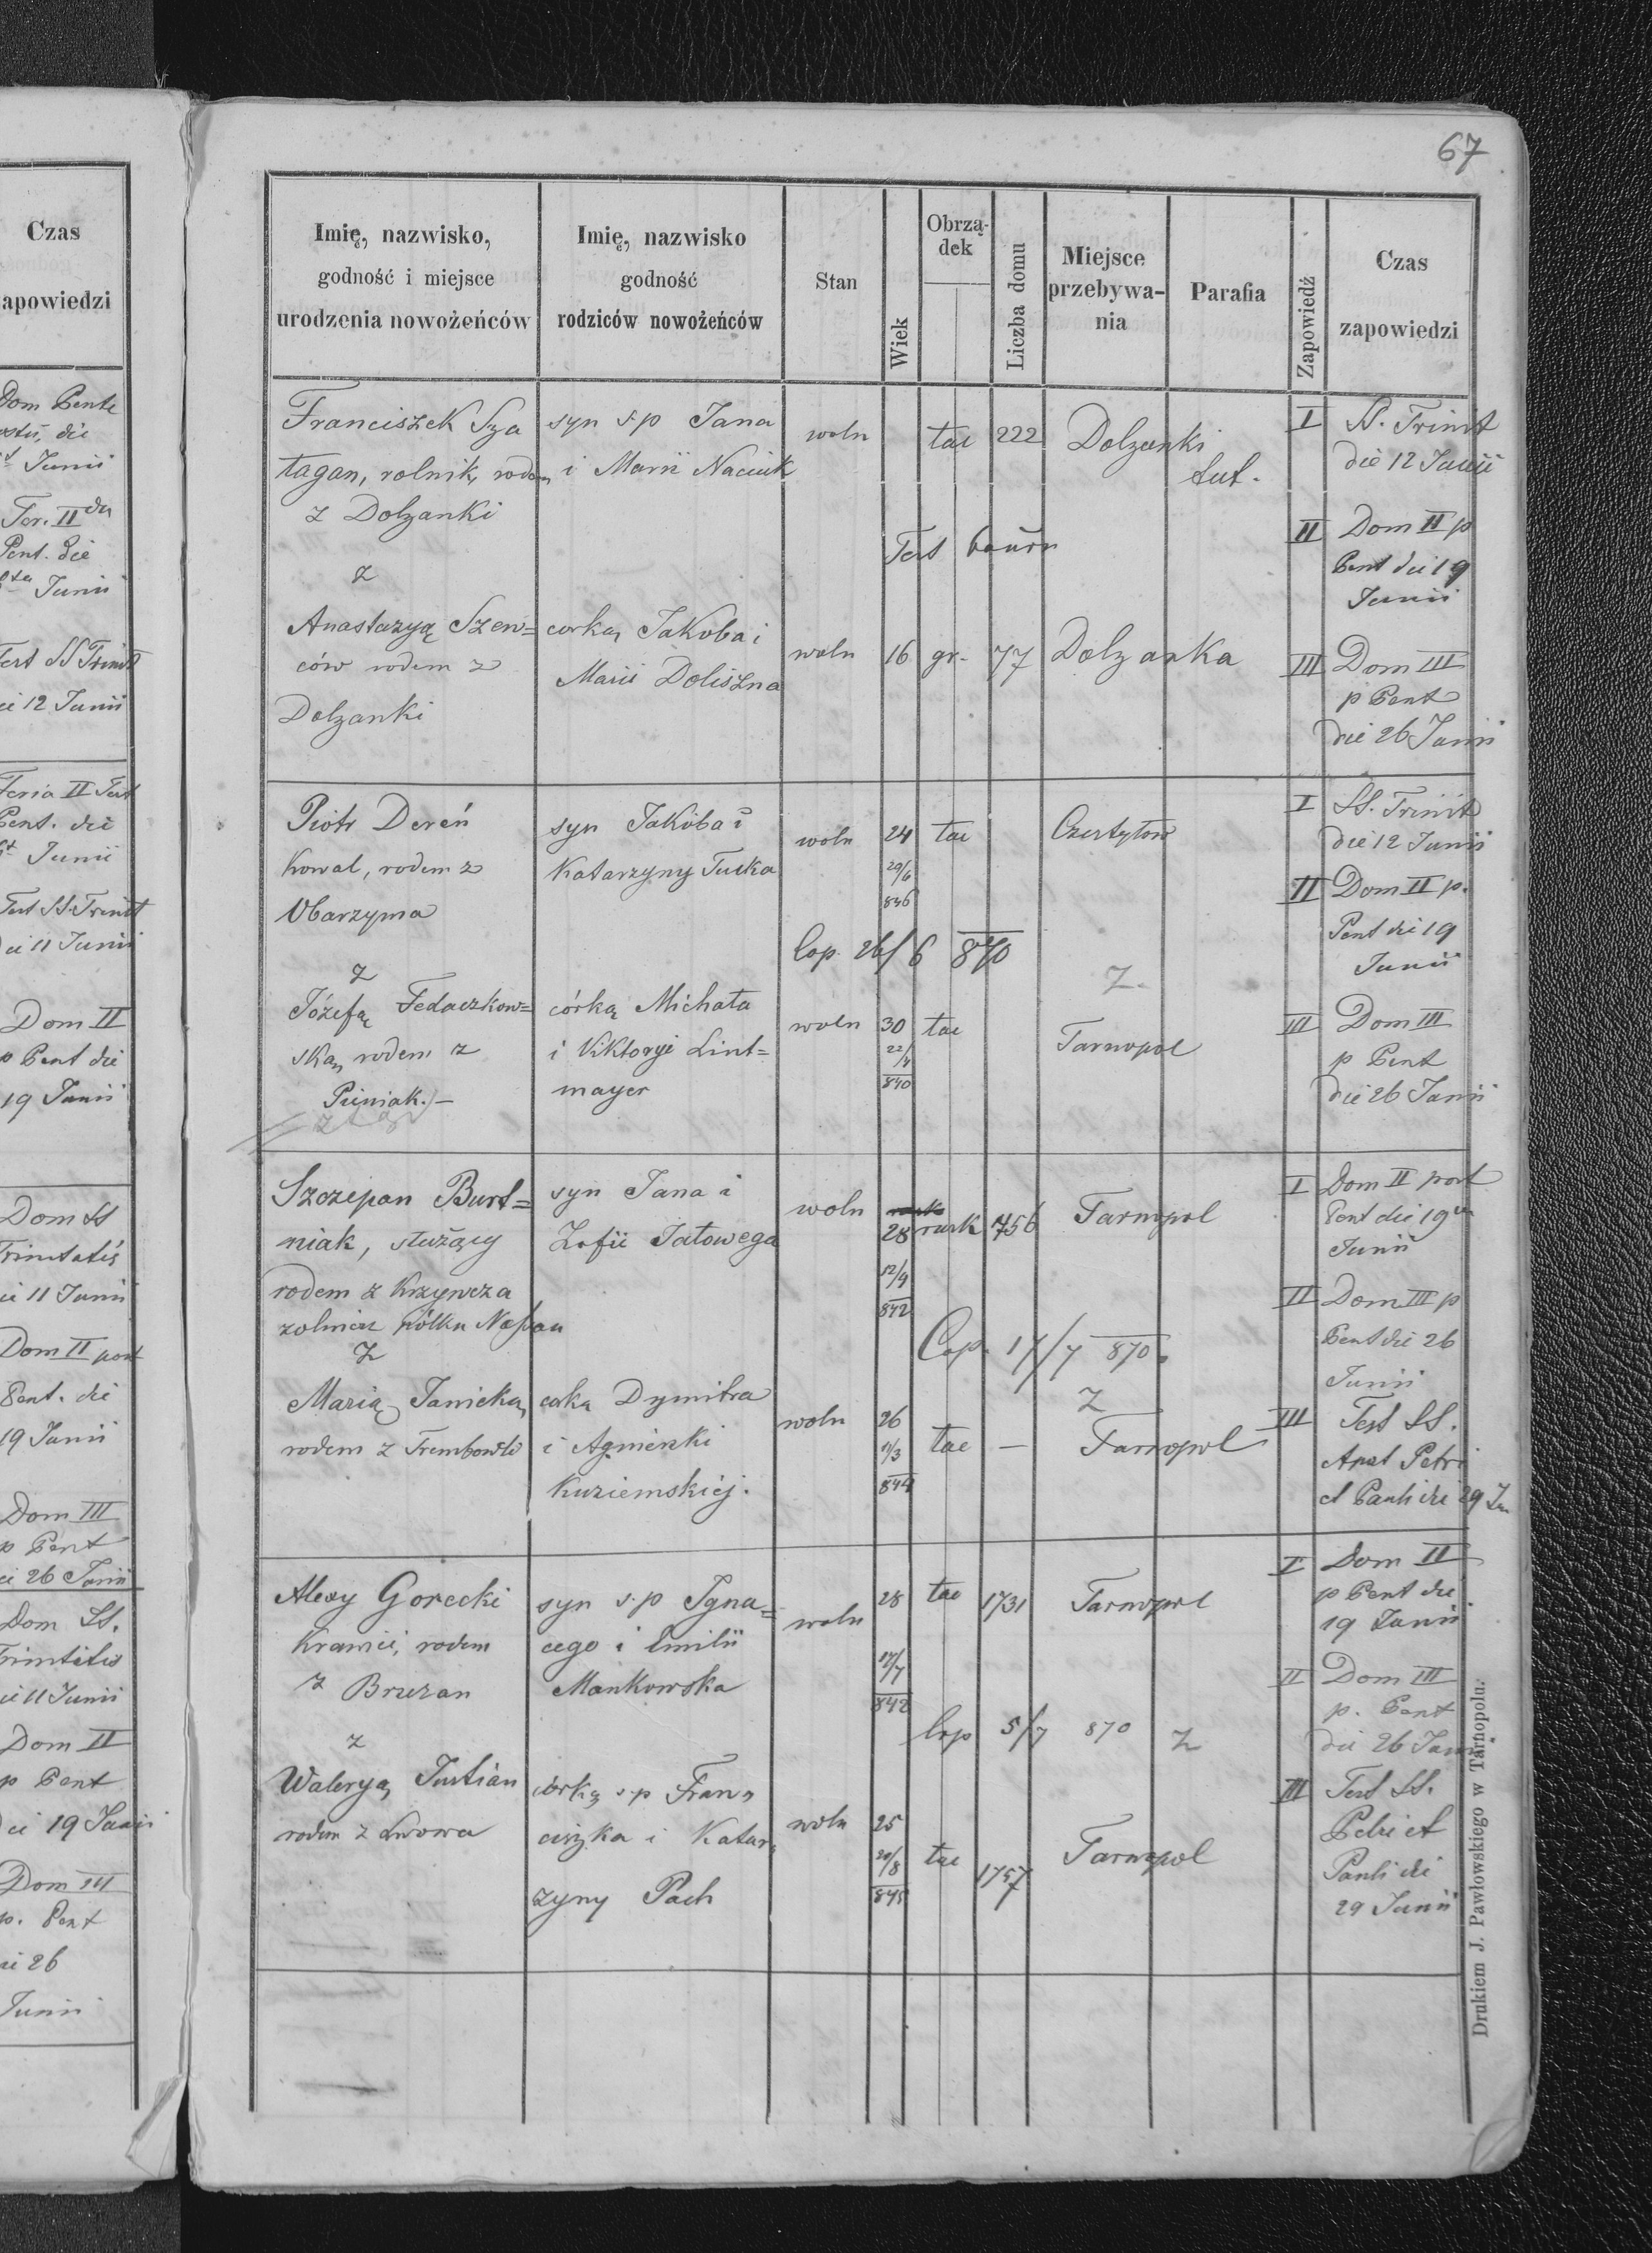 67
Czas
zapowiedzi
Dom Pente
die
Junii
Fer. II da
Pent. die
Junii
Fest SS Trinit
die 12 Junii
Feria II Fest
Pent. die
Junii
Fest SS. Trinit
die 11 Junii
Dom II
p Pent die
19 Junii
Dom SS
Trinitatis
die 11 Junii
Dom II post
Pent. die
19 Junii
Dom III
p Pent
die 26 Junii
Dom SS.
Trinitatis
die 11 Junii
Dom II
p Pent
die 19 Junii
Dom III
p. Pent
die 26
Junii
Imię, nazwisko,
godność i miejsce
urodzenia nowożeńców
Imię, nazwisko
godność
rodziców nowożeńców
Stan
Wiek
Obrzą-
dek
Liczba domu
Miejsce
przebywa-
nia
Parafia
Zapowiedź
Czas
zapowiedzi
Franciszek Sza
tagan, rolnik, rodem
z Dolzanki
z
Anastazyą Szew=
ców rodem z
Dolzanki
syn s.p Jana
i Marii Naciuk
corką Jakoba i
Marii Doliszna
woln
lac
222
Dolzanki
Lut.
Test
woln
16
gr.
77
Dolzanka
I SS. Trinit
die 12 Junii
II Dom II p
Pent die 19
Junii
III Dom III
p Pent
die 26 Junii
Piotr Dereń
kowal, rodem z
Obarzyma
z
Józefą Fedaczkow=
ską rodem z
Pieniak.–
syn Jakóba i
Katarzyny Tuska
córką Michała
i Viktoryi Lint=
mayer
woln
24
29/6
846
lac
Czystyłow
Cop. 26/6 870
z.
woln
30
22/4
840
lac
Tarnopol
I SS. Trinit
die 12 Junii
II Dom II p.
Pent die 19
Junii
III Dom III
p Pent
die 26 Junii
Szczepan Burt=
niak, służący
rodem z Krzywcza
zolnierz półku Nassau
z
Marią Janicką
rodem z Trembowli
syn Jana i
Zofii Jatowega
cką Dymitra
i Agnieszki
Kuziemskiéj.
woln
28
12/4
842
rusk
756
Tarnopol
Cop. 17/7 870.
z
woln
26
1/3
844
lac
–
Tarnopol
I Dom II post
Pent die 19
Junii
II Dom III p
Pent die 26
Junii
III Fest SS.
Apost Petri
et Pauli die 29 Jun
Alexy Gorecki
Krawiec, rodem
z Brzezan
z
Waleryą Justian
rodem z Lwowa
syn s.p Igna=
cego i Emilii
Mankowska
córką s.p Fran=
ciszka i Katar=
zyny Pach
woln
28
17/7
842
lac
1731
Tarnopol
Cop 5/7 870 z
woln
25
20/8
845
lac
1757
Tarnopol
I Dom II
p Pent die
19 Junii
II Dom III
p. Pent
die 26 Junii
III Fest SS.
Petri et
Pauli die
29 Junii
Drukiem J. Pawłowskiego w Tarnopolu.